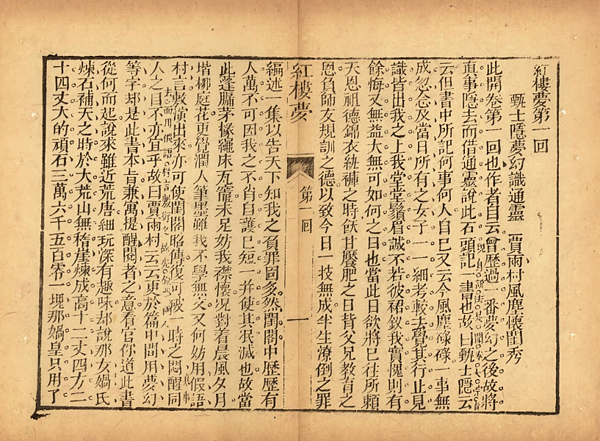 紅樓夢第一回
甄士隱夢幻識通靈　賈雨村風塵懷閨秀
此開卷第一回也作者自云曾歷過一番夢幻之後故將
真事隱去而借通靈說此石頭記一書也故曰甄士隱云
云但書中所記何事何人自己又云今風塵碌碌一事無
成忽念及當日所有之女子一一細考較去覺其行止見
識皆出我之上我堂堂鬚眉誠不若彼裙釵我實愧則有
餘悔又無益大無可如何之日也當此日欲將已往所賴
天恩祖德錦衣紈褲之時飫甘饜肥之日背父兄教育之
恩負師友規訓之德以致今日一技無成半生潦倒之罪
紅樓夢　第一回　一
編述一集以告天下知我之負罪固多然閨閣中歷歷有
人萬不可因我之不肖自護己短一并使其泯滅也故當
此蓬牖茅椽繩床瓦竈未足妨我襟懷況對着晨風夕月
堦柳庭花更覺潤人筆墨雖我不學無文又何妨用假語
村言敷衍出來亦可使閨閣昭傳復可破一時之悶醒同
人之目不亦宜乎故曰賈雨村云云更於篇中間用夢幻
等字却是此書本旨兼寓提醒閱者之意看官你道此書
從何而起說來雖近荒唐細玩深有趣味却說那女媧氏
煉石補天之時於大荒山無稽崖煉成高十二丈四方二
十四丈大的頑石三萬六千五百零一塊那媧皇只用了